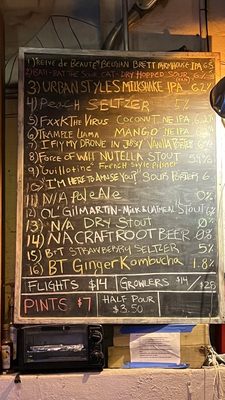 1) REINE de BEAUTÉ BELGIAN BRETT
2) BAH-BAT THE SOUR CAT - DRY HOPPED SOUR
3) URBAN STYLES MILKSHAKE IPA 6.2%
4) PeacH SELTZER 5%
5) FXXK THE VIRUS COCONUT NE IPA
6) TRAMPLE LLAMA MANGO NE IPA
7) I FLY MY DRONE IN Vanilla BITTER
8) FORCE OF WILL NUTELLA STOUT
9) Guillotine French Style Pilsner
10) I'M HERE TO AMUSE YOU SOUR PORTER 6
11) N/A PaleALe 0%
12) OL' GILMARTIN - MILK & OATMEAL STOUT
13) N/A DRY STOUT 0%
14) NA CRAFT ROOT BEER 0%
15) BT STRAWBERRY SELTZER 5%
16) BT GingerKombucha 1.8%
FLIGHTS $14 GROWLERS $14/$28
PINTS $7 HALF POUR
$3.50